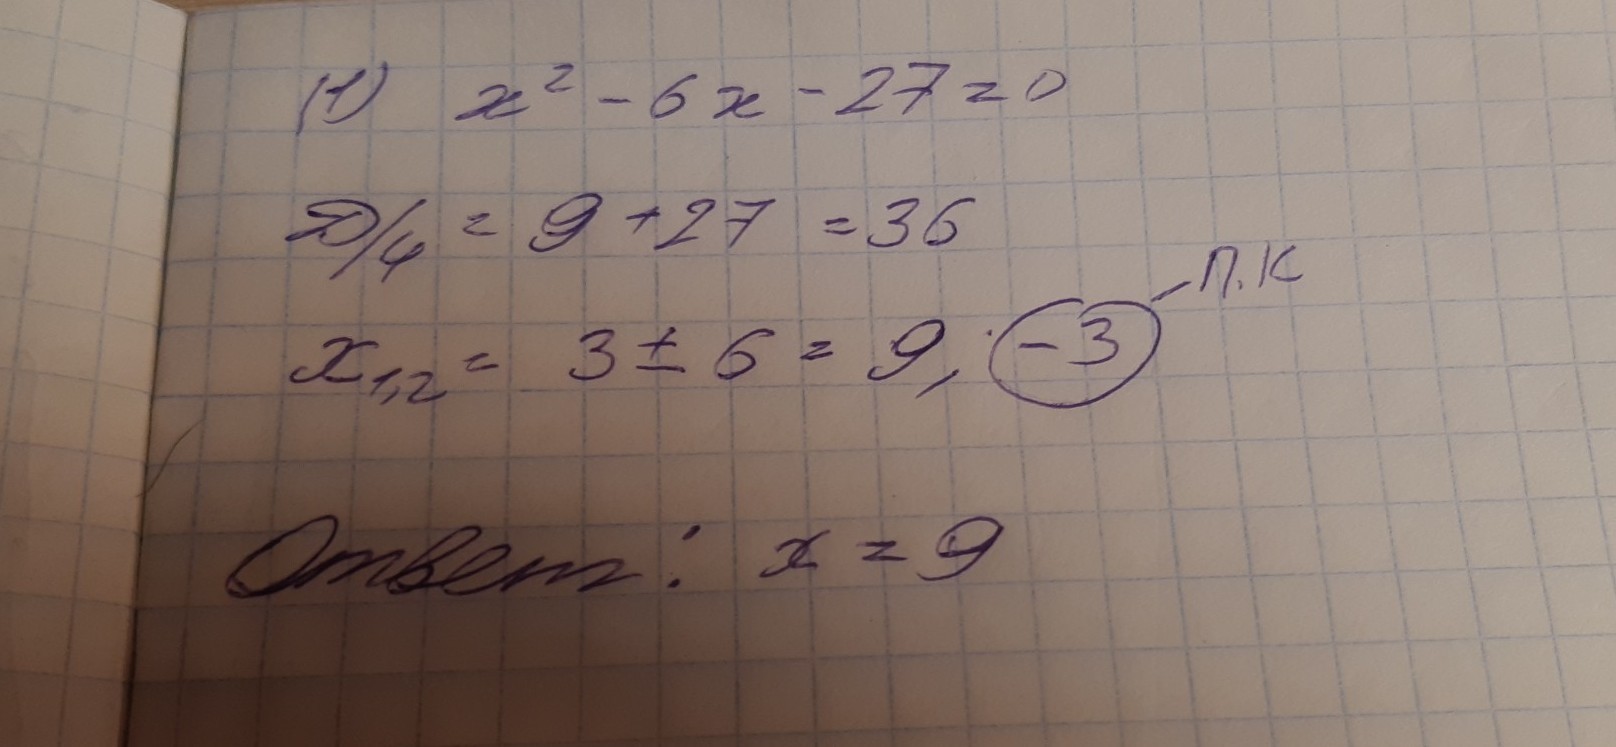 (1) x² - 6x - 27 = 0
D/4 = 9 + 27 = 36
x₁,₂ = 3 ± 6 = 9, -3 - П.К
Ответ: x = 9